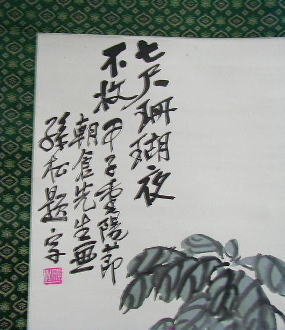 七尺珊瑚夜
不收
甲子重陽節
朝倉先生
孫松題字